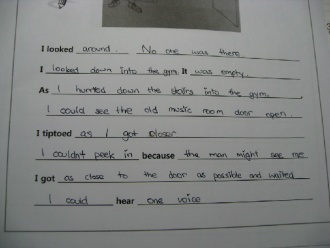 I looked around. No one was there
I looked down into the gym. It was empty
As I hurried down the stairs into the gym.
I could see the old music room door open
I tiptoed as I got closer
I couldnt peek in because the man might see me
I got as close to the door as possible and waited
I could hear one voice